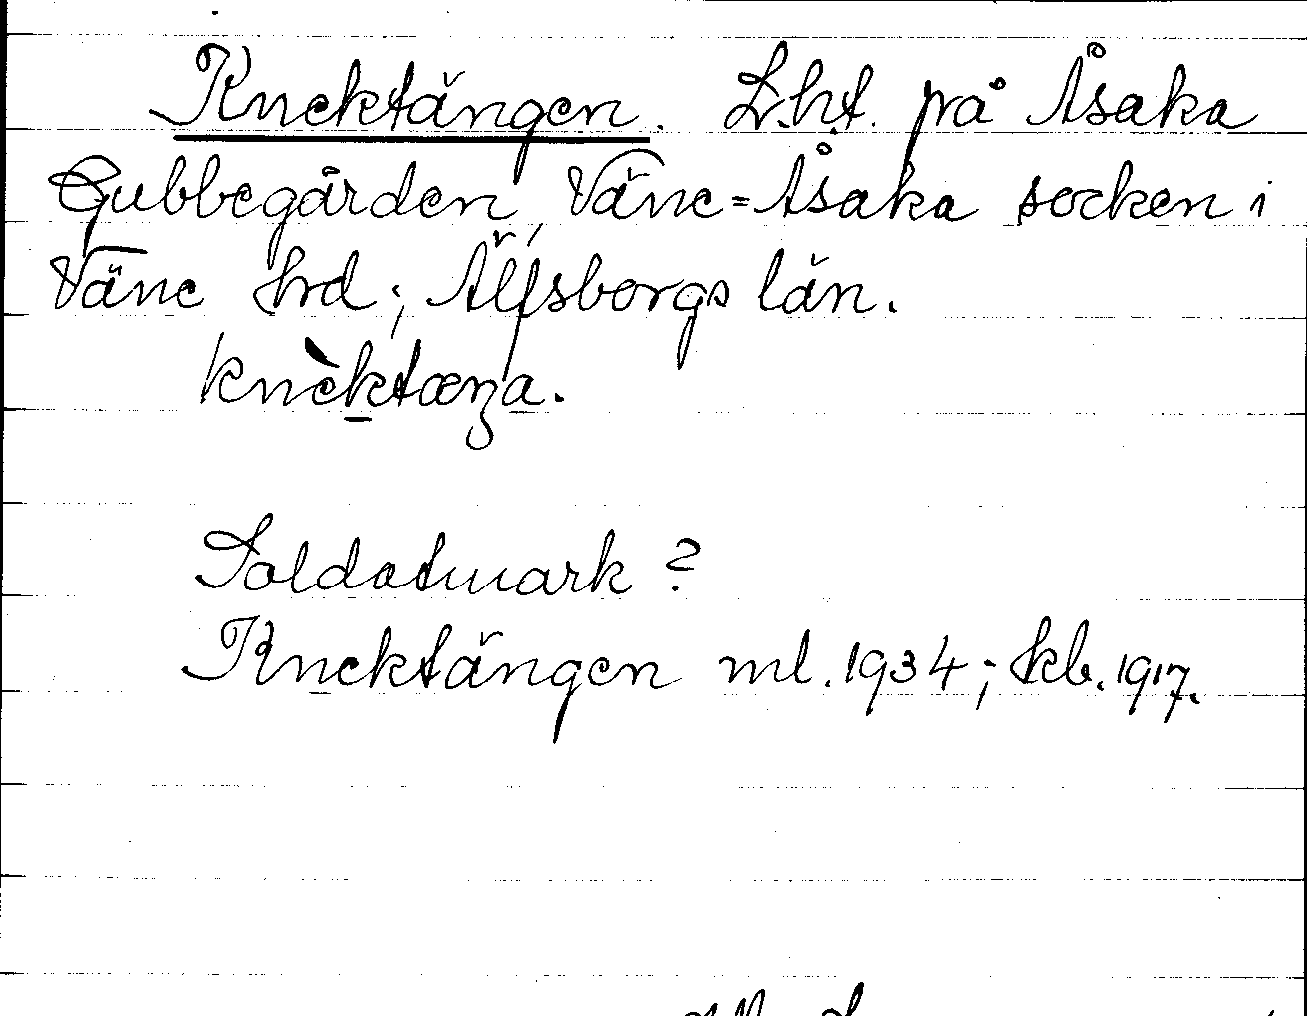 Knektängen. Lht. på Åsaka
Gubbegården, Väne=Åsaka socken i
Väne hrd; Älfsborgs län.
knèktæŋa.
Soldatmark?
Knektängen ml. 1934; kb. 1917.